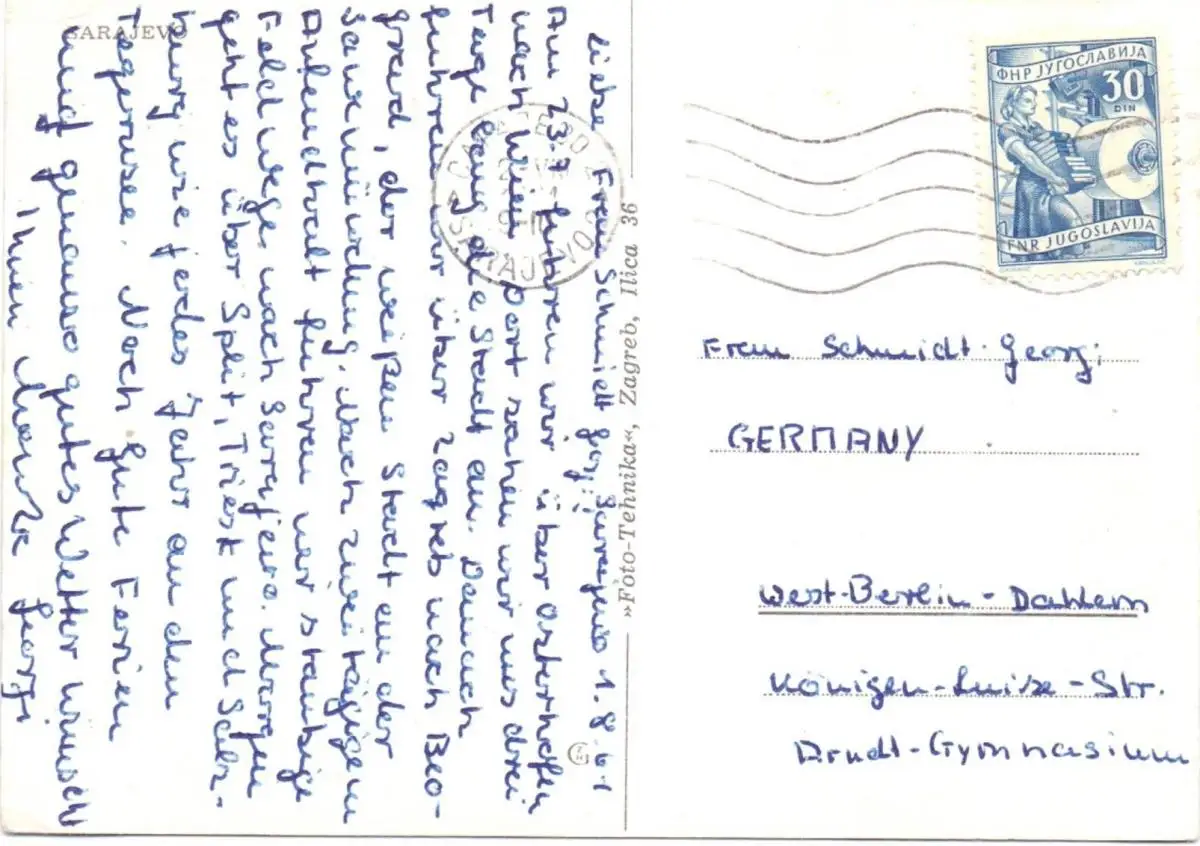 SARAJEVO
Sarajewo 1.8.61
Liebe Frau Schmidt Georgi!
Am 23.7 fuhren wir über Osterhofen
nach Wien. Dort sahen wir uns drei
Tage lang die Stadt an. Danach
fuhren wir über Zagreb nach Beo-
grad, der weißen Stadt an der
Savemündung. Nach zweitägigem
Aufendhalt fuhren wir staubige
Feldwege nach Sarajewo. Morgen
geht es über Split, Triest und Salz-
burg wie jedes Jahr an den
Tegernsee. Noch gute Ferien
und genauso gutes Wetter wünscht
Ihnen Georgi
»Foto-Tehnika«, Zagreb, Ilica 36
SARAJEVO
ФНР ЈУГОСЛАВИЈА
30
DIN
FNR JUGOSLAVIJA
Frau Schmidt-Georgi
GERMANY
West-Berlin-Dahlem
Königen-Luise-Str.
Arndt-Gymnasium